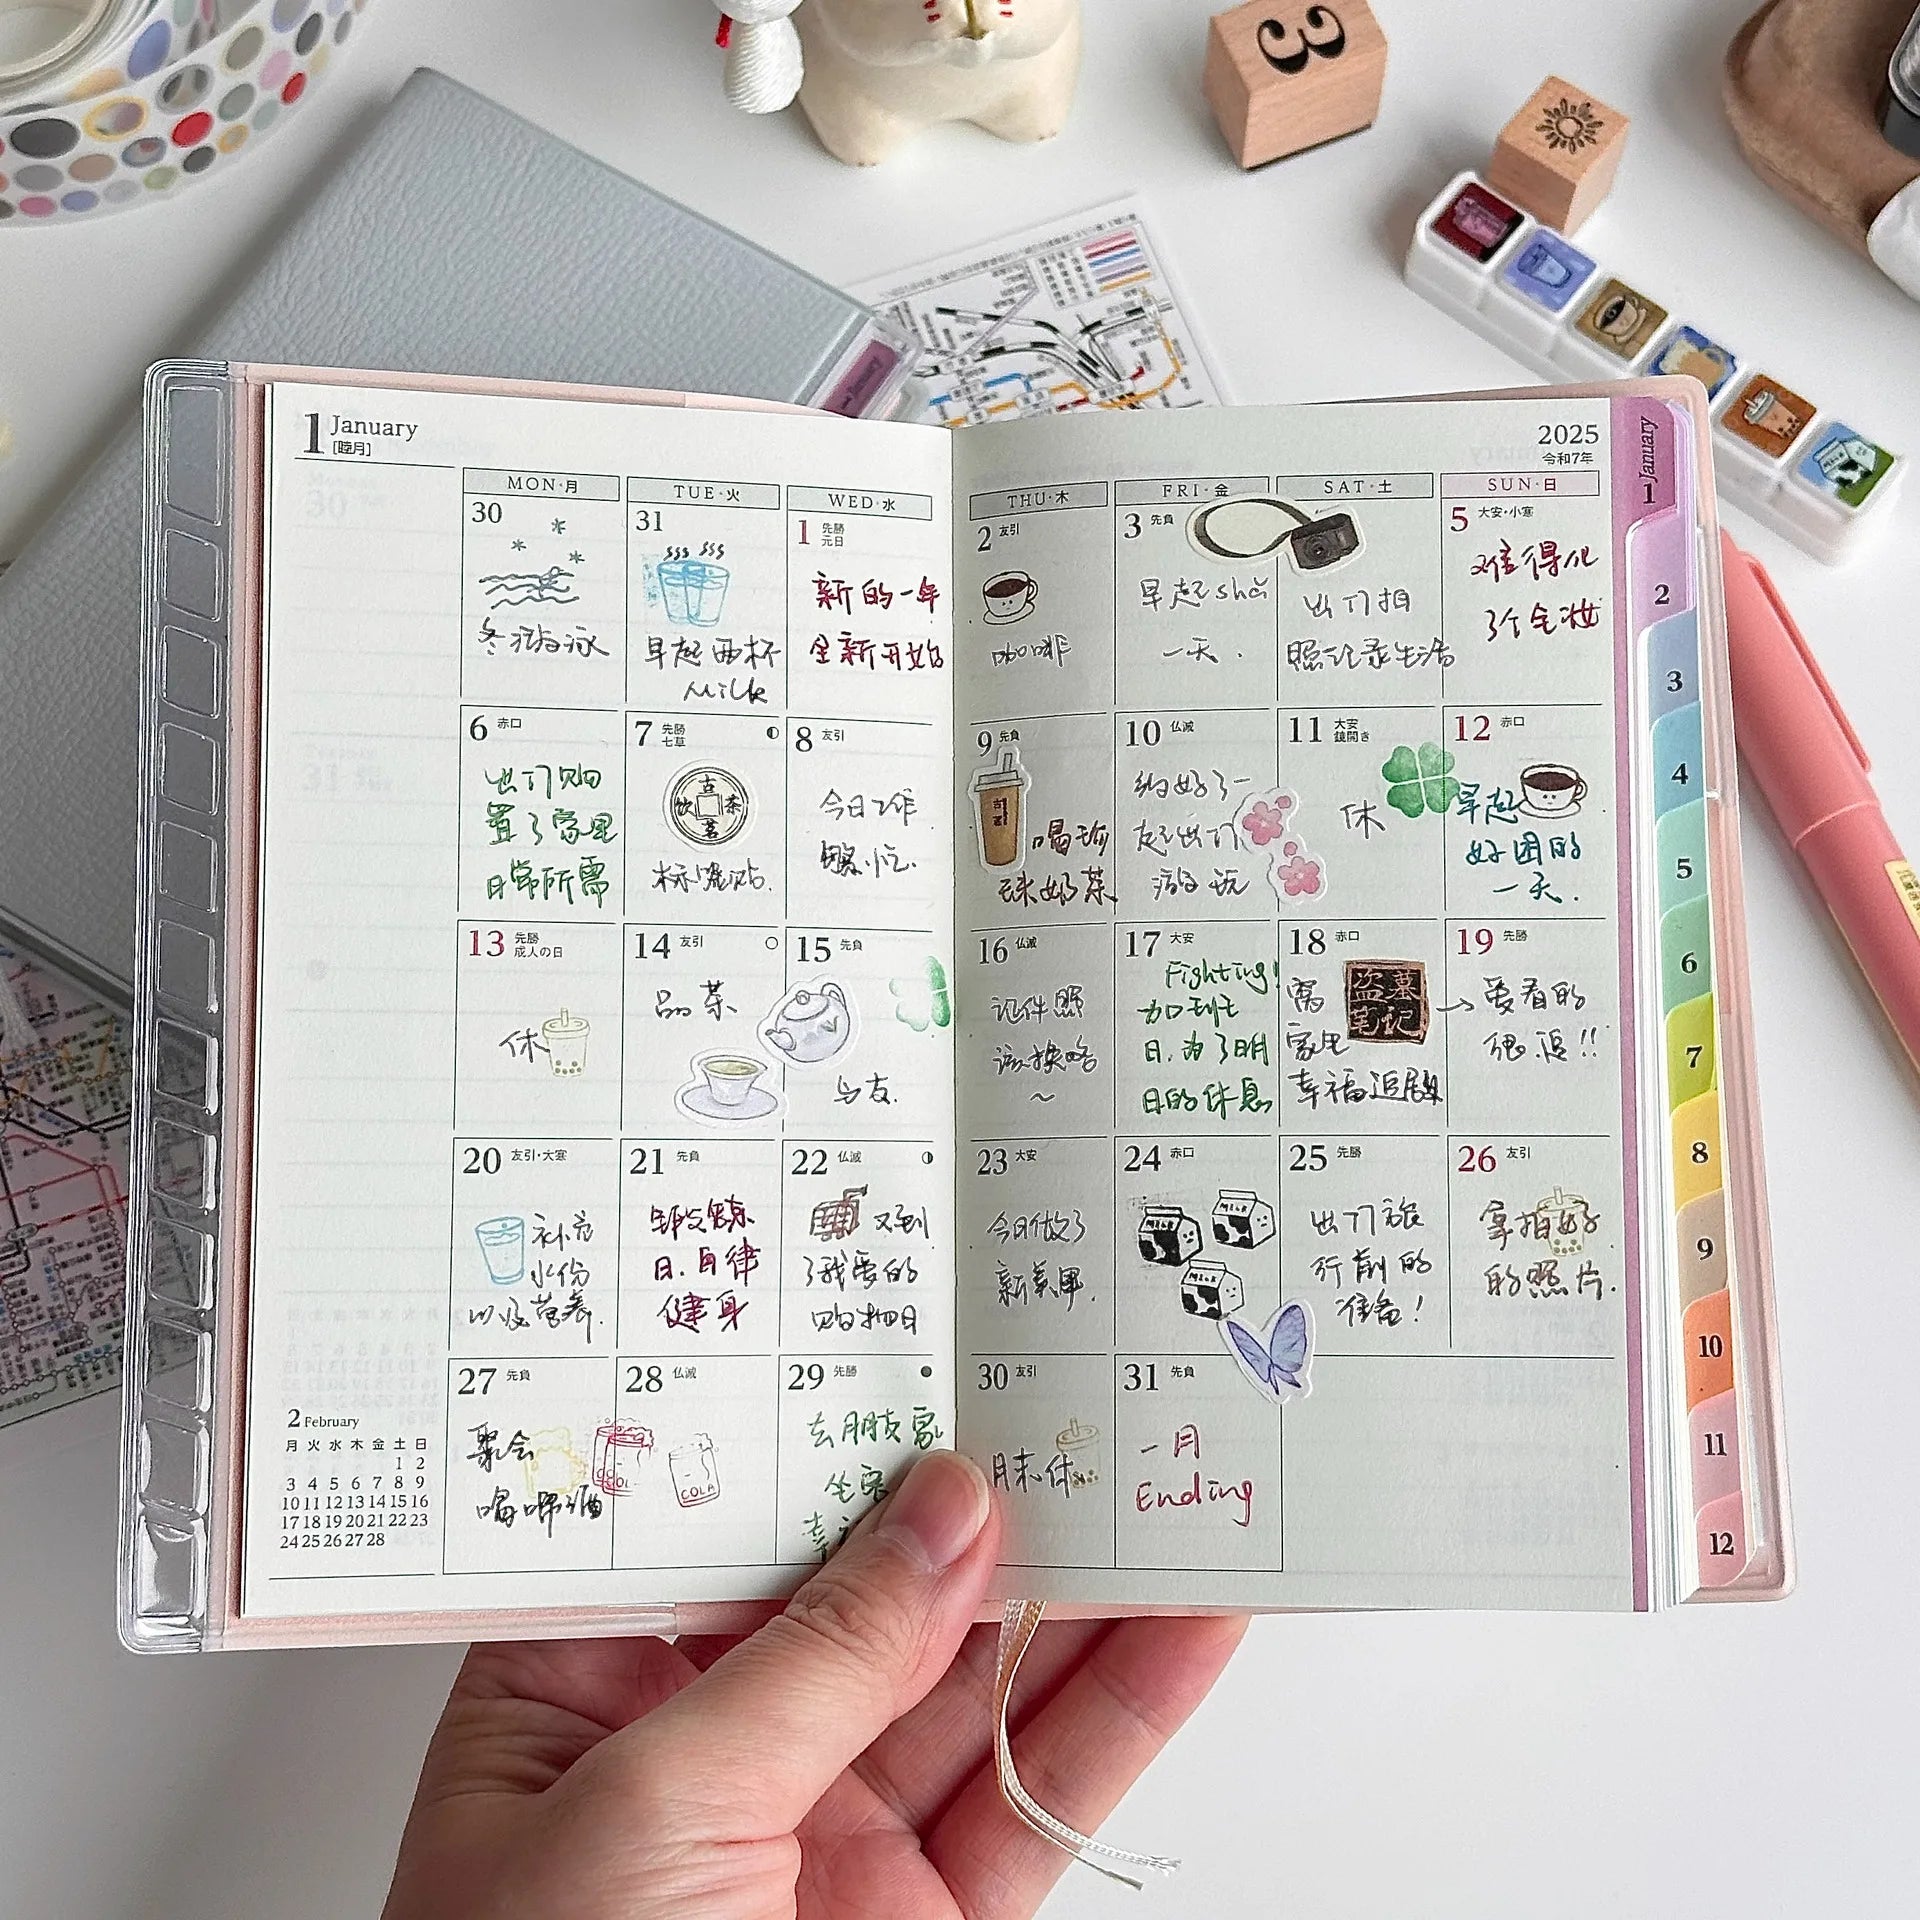 1 January
[睦月]
2025
令和7年
MON·月
TUE·火
WED·水
THU·木
FRI·金
SAT·土
SUN·日
30
冬游泳
31
早起两杯
Milk
1 先勝
元日
新的一年
全新开始
2 友引
咖啡
3 先負
早起shǎ
一天.
出门拍
照记录生活
5 大安·小寒
难得化
了个全妆
6 赤口
出门购
置了家里
日常所需
7 先勝
七草
古
饮 茶
茗
8 友引
今日工作
繁忙.
9 先負
喝珍
珠奶茶
10 仏滅
约好了一
起出门
游玩
11 大安
鏡開き
休
12 赤口
早起
好困的
一天.
13 先勝
成人の日
休
14 友引
品茶
15 先負
与友.
16 仏滅
证件照
该换咯
~
17 大安
Fighting!
加班
日.为了明
日的休息
18 赤口
窝
家里
幸福追剧
盗墓
笔记
19 先勝
→爱看的
很追!!
20 友引·大寒
补充
水份
以及营养.
21 先負
锻炼
日.自律
健身
22 仏滅
又到
了我爱的
购物日
23 大安
今日做了
新美甲.
24 赤口
MILK
MILK
MILK
25 先勝
出门旅
行前的
准备!
26 友引
拿拍好
的照片.
27 先負
聚会
喝啤酒
28 仏滅
COLA
29 先勝
去朋友家
坐客
30 友引
月末休
31 先負
一月
Ending
2 February
月 火 水 木 金 土 日
1 2
3 4 5 6 7 8 9
10 11 12 13 14 15 16
17 18 19 20 21 22 23
24 25 26 27 28
1 January
2
3
4
5
6
7
8
9
10
11
12
3